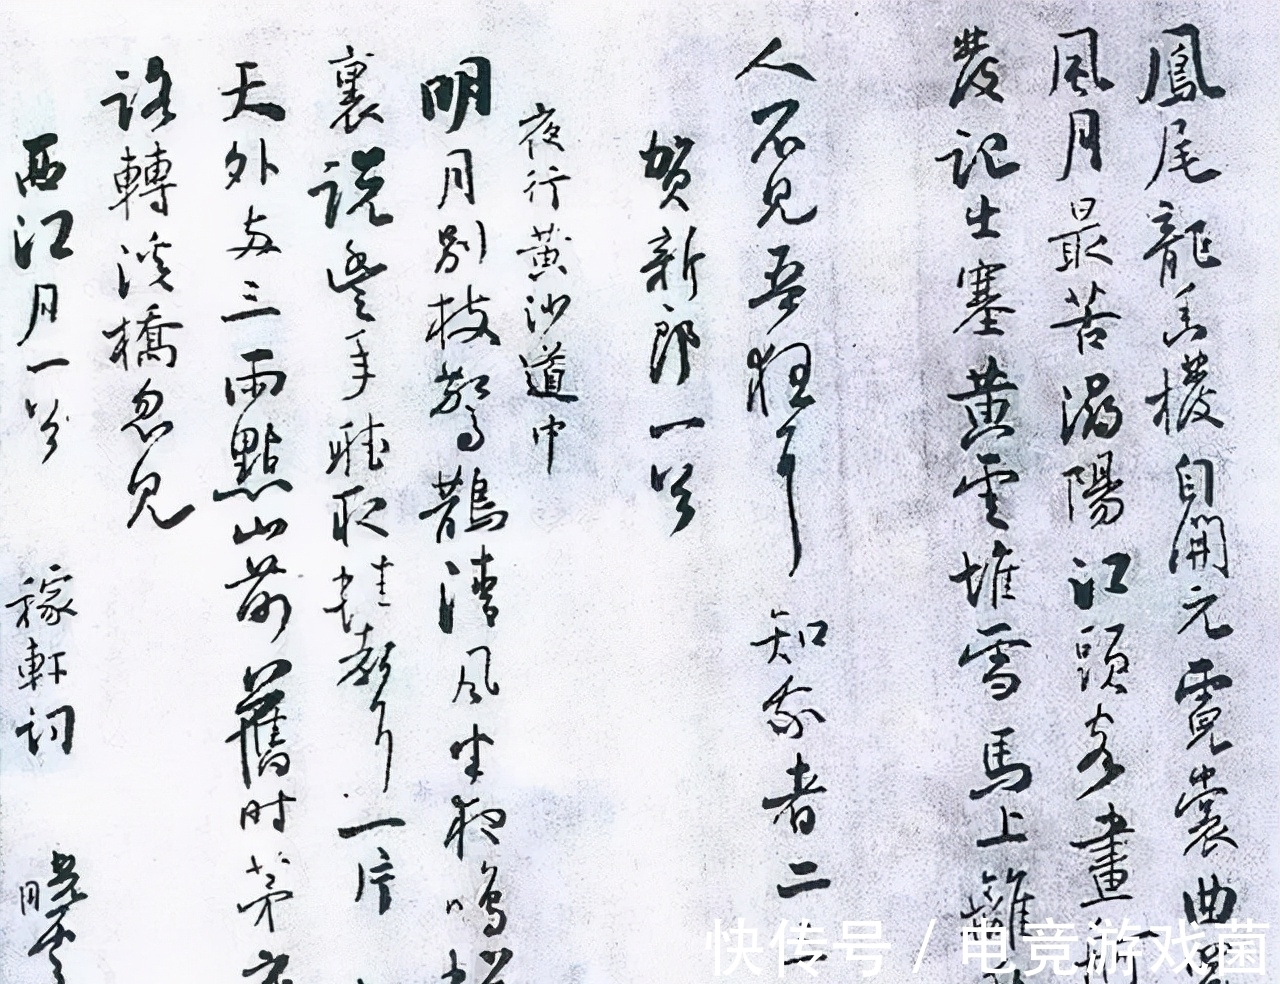 鳳尾龍香撥自開元霓裳曲罷
風月最苦潯陽江頭客畫舸
發記出塞黃雲堆雪馬上離
人不見吾狂耳 知我者二三
賀新郎一首
夜行黃沙道中
明月別枝驚鵲清風半夜鳴
裏說豐年聽取蛙聲一片
天外兩三雨點山前舊时茅
路轉溪橋忽見
西江月一首 稼軒詞 曉雲
快传号/电竞游戏菌